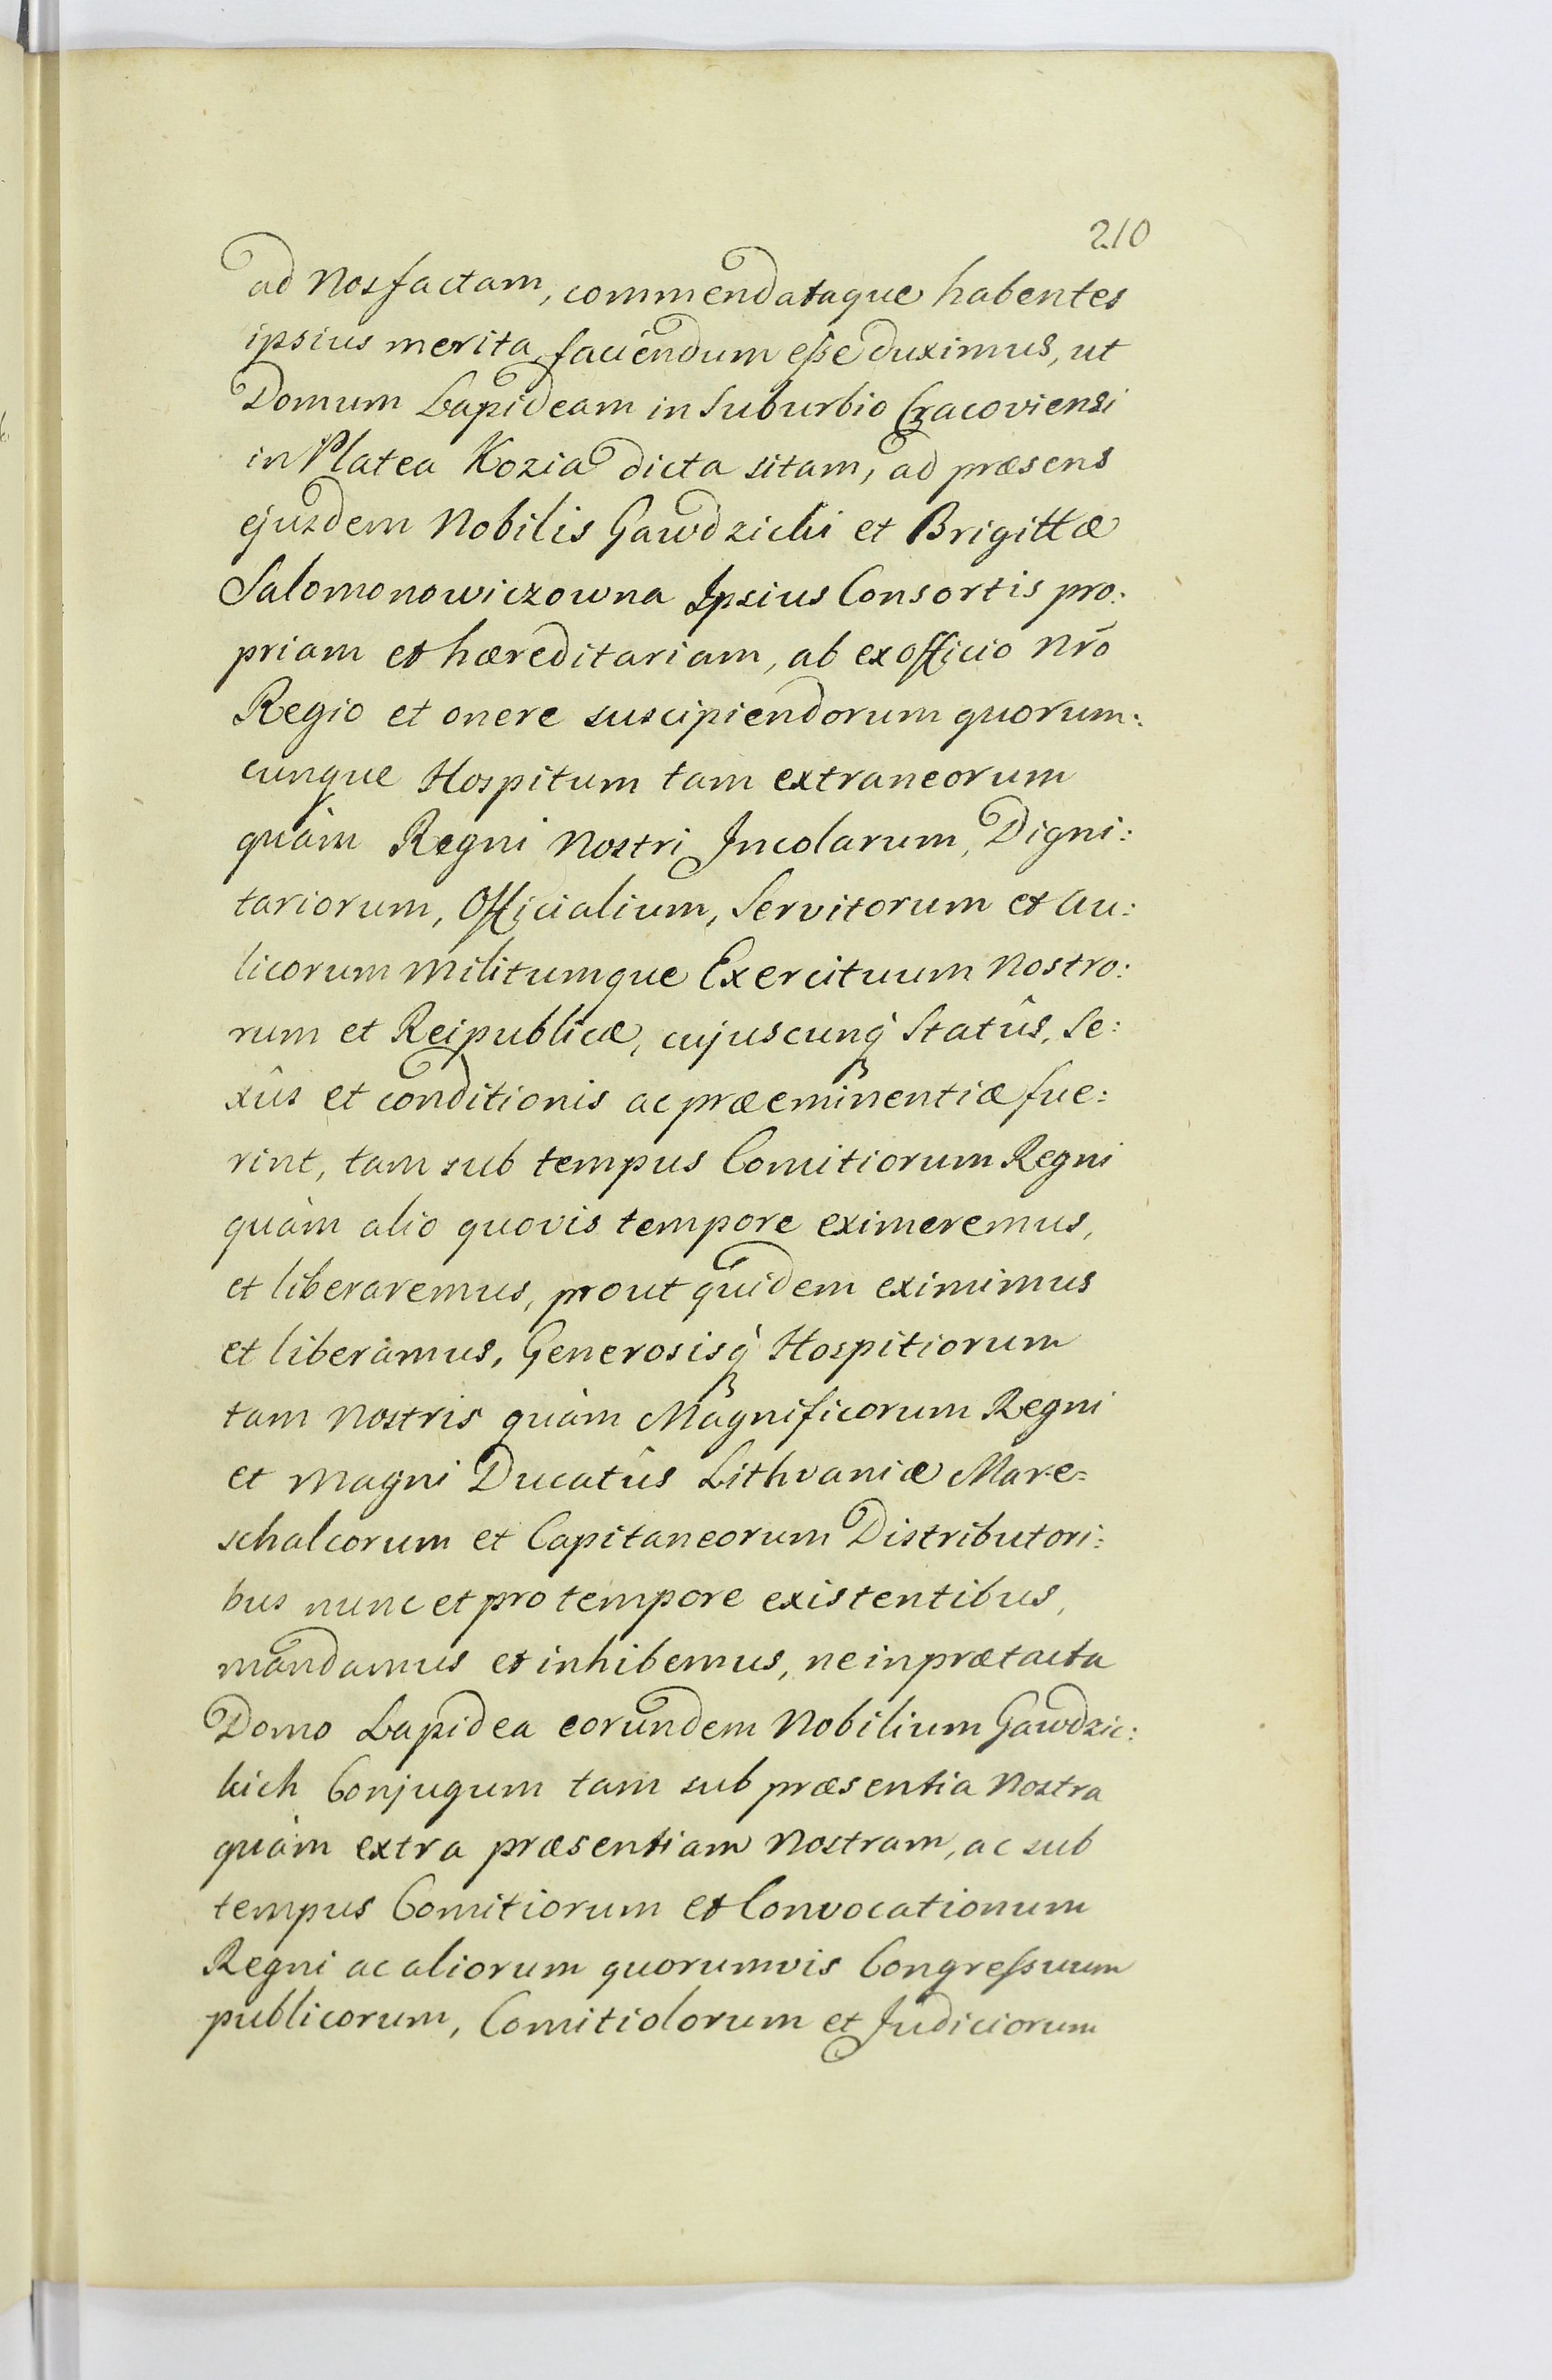 210
ad Nos factam, commendataque habentes
ipsius merita faciendum esse duximus, ut
Domum Lapideam in Suburbio Cracoviensi
in Platea Kozia dicta sitam, ad præsens
ejusdem Nobilis Gawdzicki et Brigittæ
Salomonowiczowna Ipsius Consortis pro:
priam et hæreditariam, ab ex officio Nrõ
Regio et onere suscipiendorum quorum:
cunque Hospitum tam extraneorum
quàm Regni Nostri Incolarum, Digni:
tariorum, Officialium, Servitorum et Au:
licorum Militumque Exercituum Nostro:
rum et Reipublicæ, cujuscunq̀ Statûs, Se:
xûs et conditionis ac præeminentiæ fue:
rint, tam sub tempus Comitiorum Regni
quàm alio quovis tempore eximeremus,
et liberaremus, prout quidem eximimus
et liberamus, Generosisq̀ Hospitiorum
tam Nostris quàm Magnificorum Regni
et Magni Ducatûs Lithvaniæ Mare=
schalcorum et Capitaneorum Distributori:
bus nunc et pro tempore existentibus,
mandamus et inhibemus, ne in prætacta
Domo Lapidea eorundem Nobilium Gawdzic:
kich Conjugum tam sub præsentia Nostra
quàm extra præsentiam Nostram, ac sub
tempus Comitiorum et Convocationum
Regni ac aliorum quorumvis Congressuum
publicorum, Comitiolorum et Judiciorum